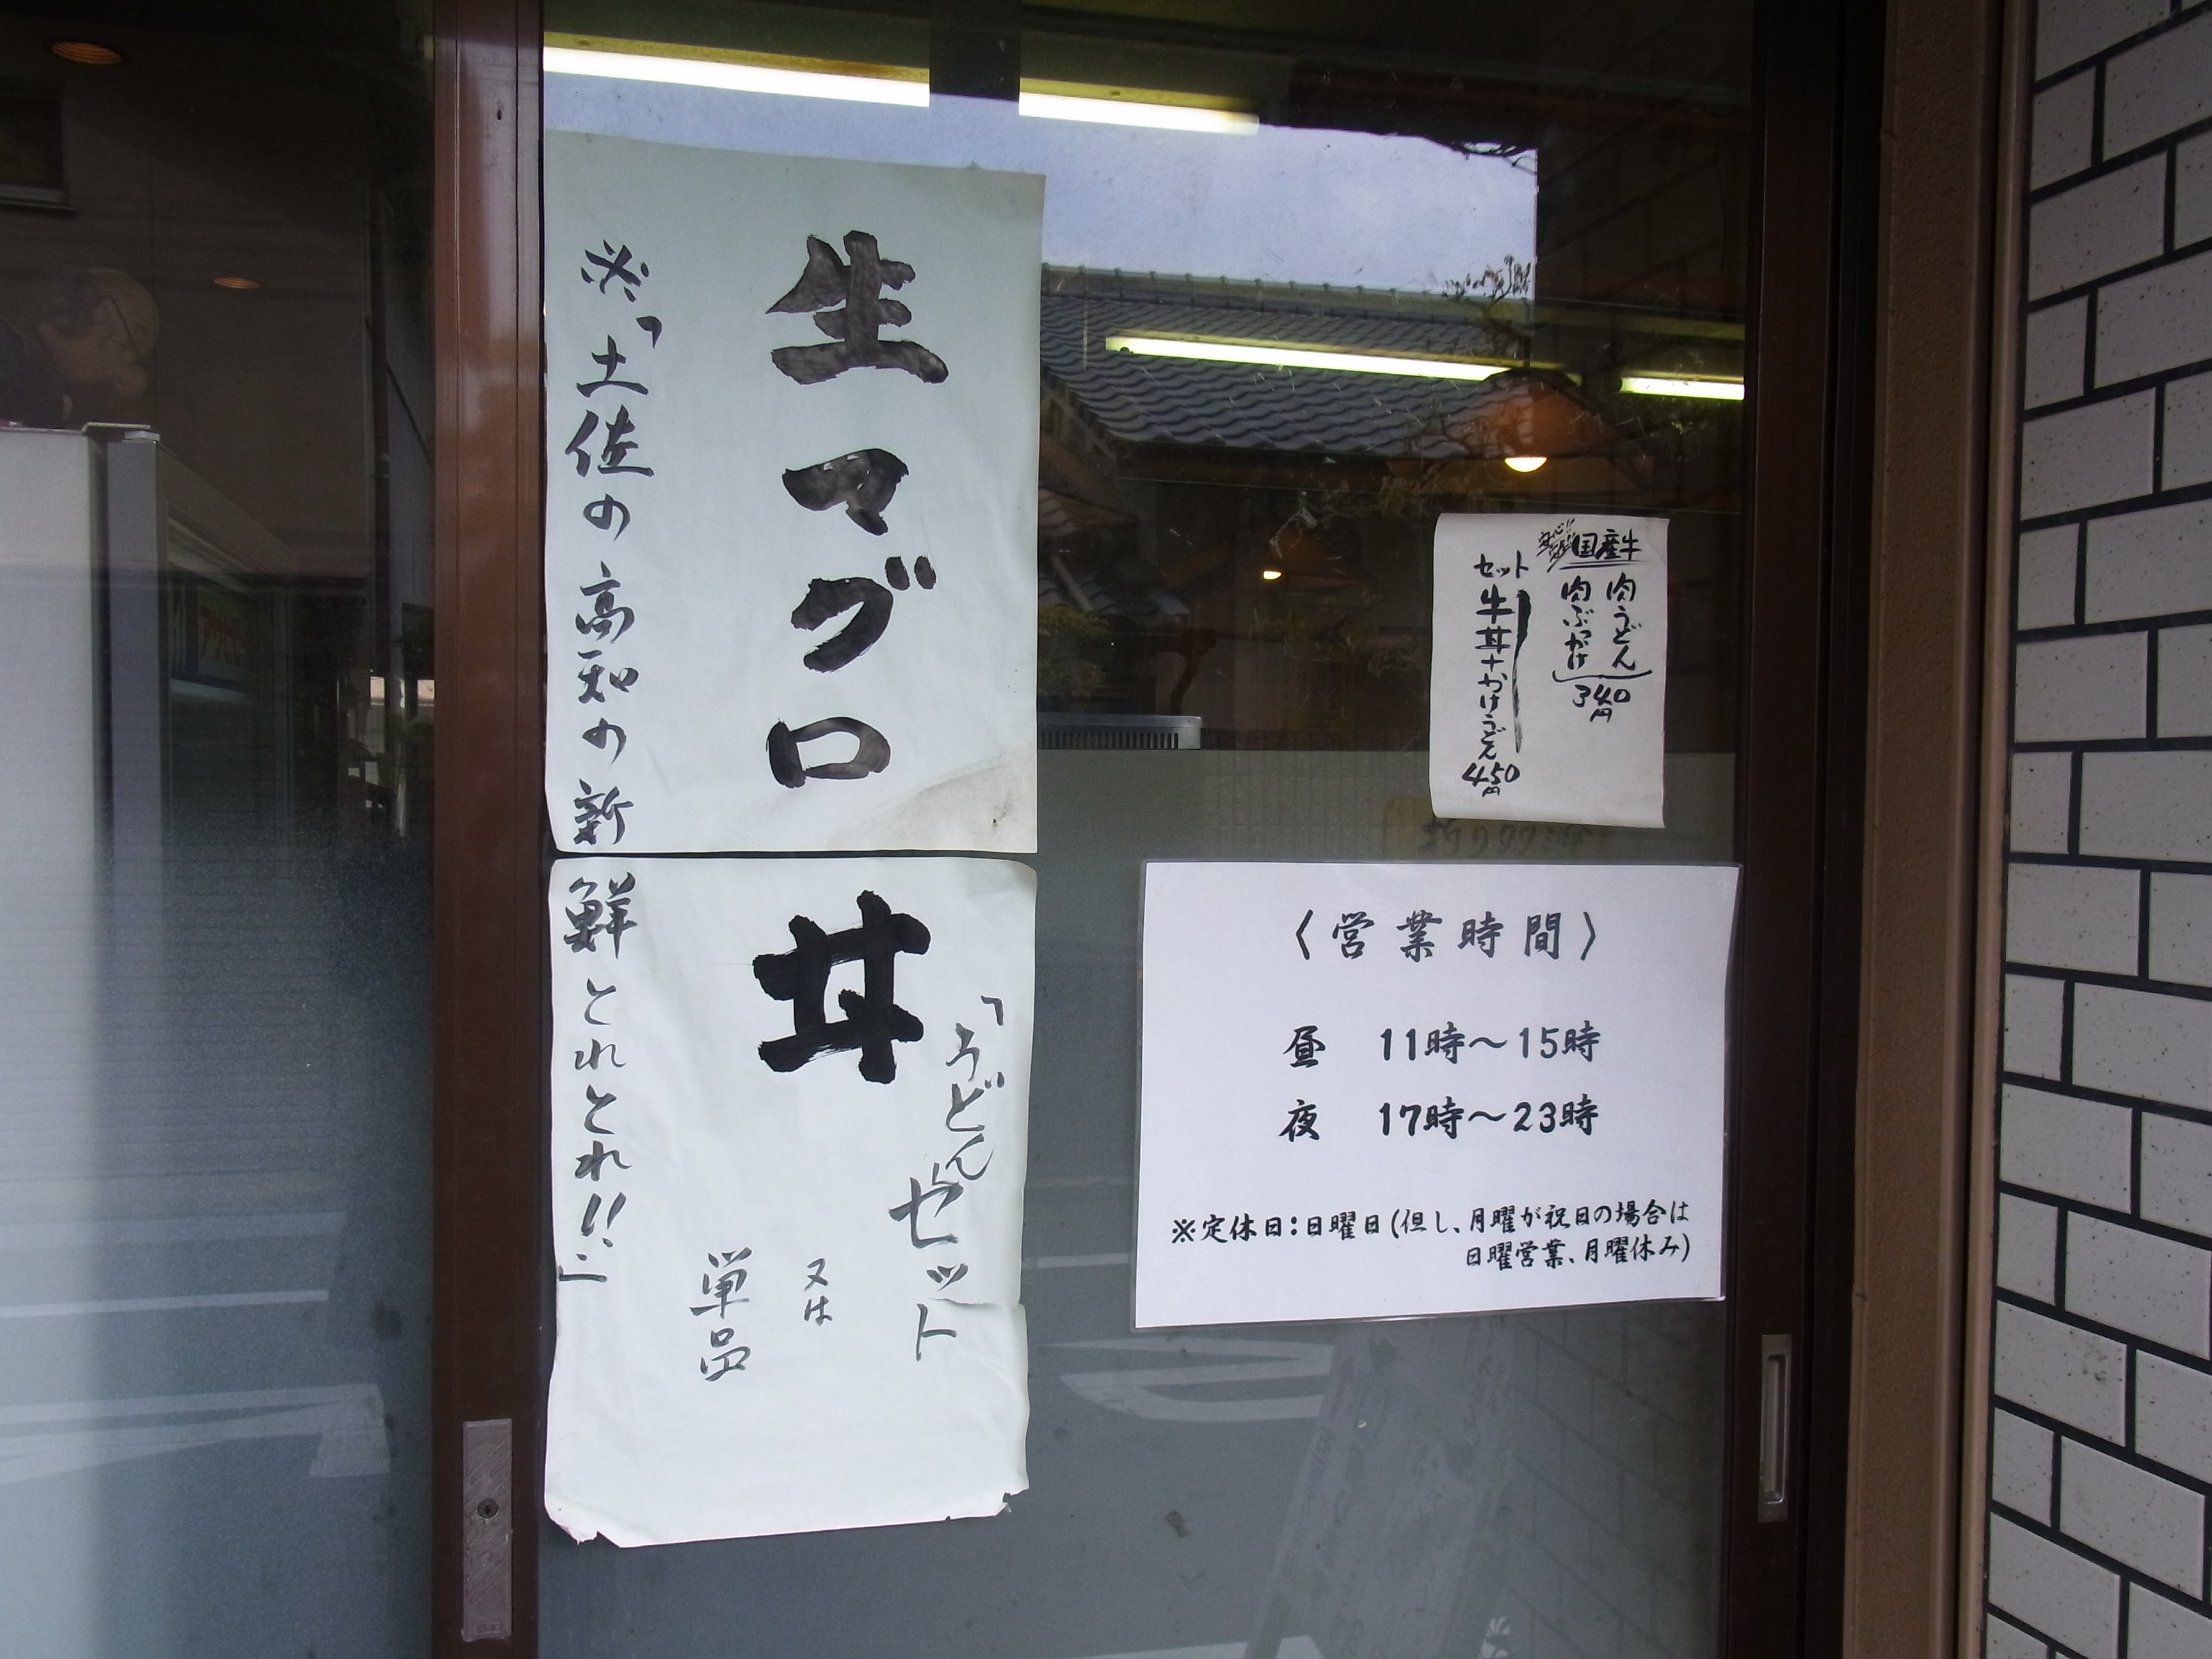 生マグロ丼
「うどんセット
又は
単品
※「土佐の高知の新鮮とれとれ!!」
国産牛
肉うどん
肉ぶっかけ
340円
セット
牛丼+かけうどん
450円
〈営業時間〉
昼 11時〜15時
夜 17時〜23時
※定休日:日曜日(但し、月曜が祝日の場合は
日曜営業、月曜休み)